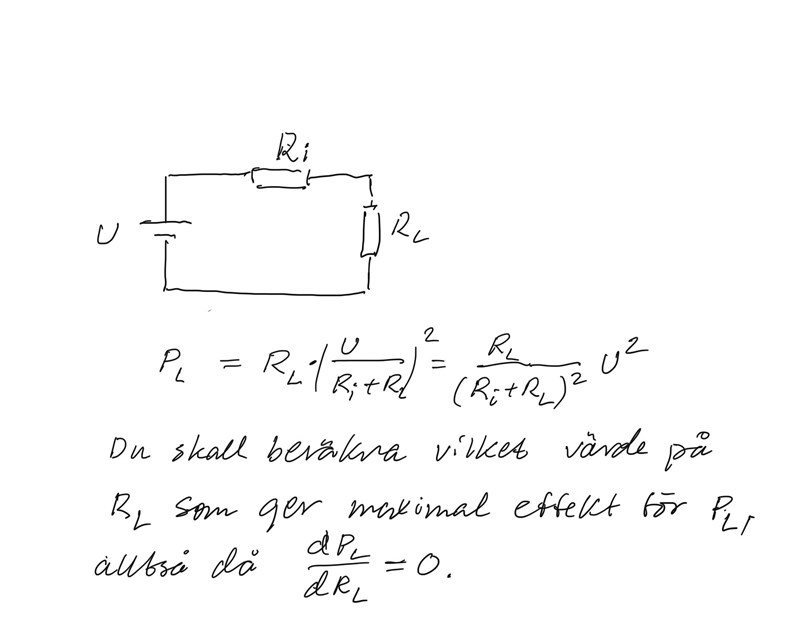 Ri
U
RL
PL = RL · (U / (Ri + RL))² = RL / (Ri + RL)² U²
Du skall beräkna vilket värde på
RL som ger maximal effekt för PL,
alltså då dPL / dRL = 0.